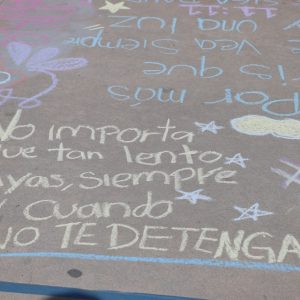 No importa
que tan lento
vayas, siempre
y cuando
NO TE DETENGA
Por más
is que
Vea siempre
y una luz